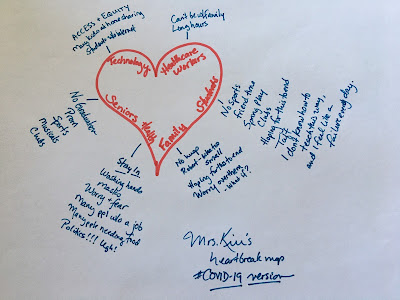 ACCESS + EQUITY
Many kids at home sharing
Students w/o internet
Can't be w/family
Long hours
Technology
Healthcare
Workers
Students
Family
Health
Seniors
No Graduation
Prom
Sports
Musicals
Clubs
Stay In
Washing hands
masks
Worry + fear
Many ppl w/o a job
Many ppl needing food
Politics!!! Ugh!
No hugs
to
small
Hoping for this to end
Worry over them
- what if?
No Sports
friend time
Spring Play
Clubs
Hoping for this to end
I don't know how to
teach this way,
and I feel like a
failure every day.
Mrs. Kim's
heartbreak map
#COVID-19 version